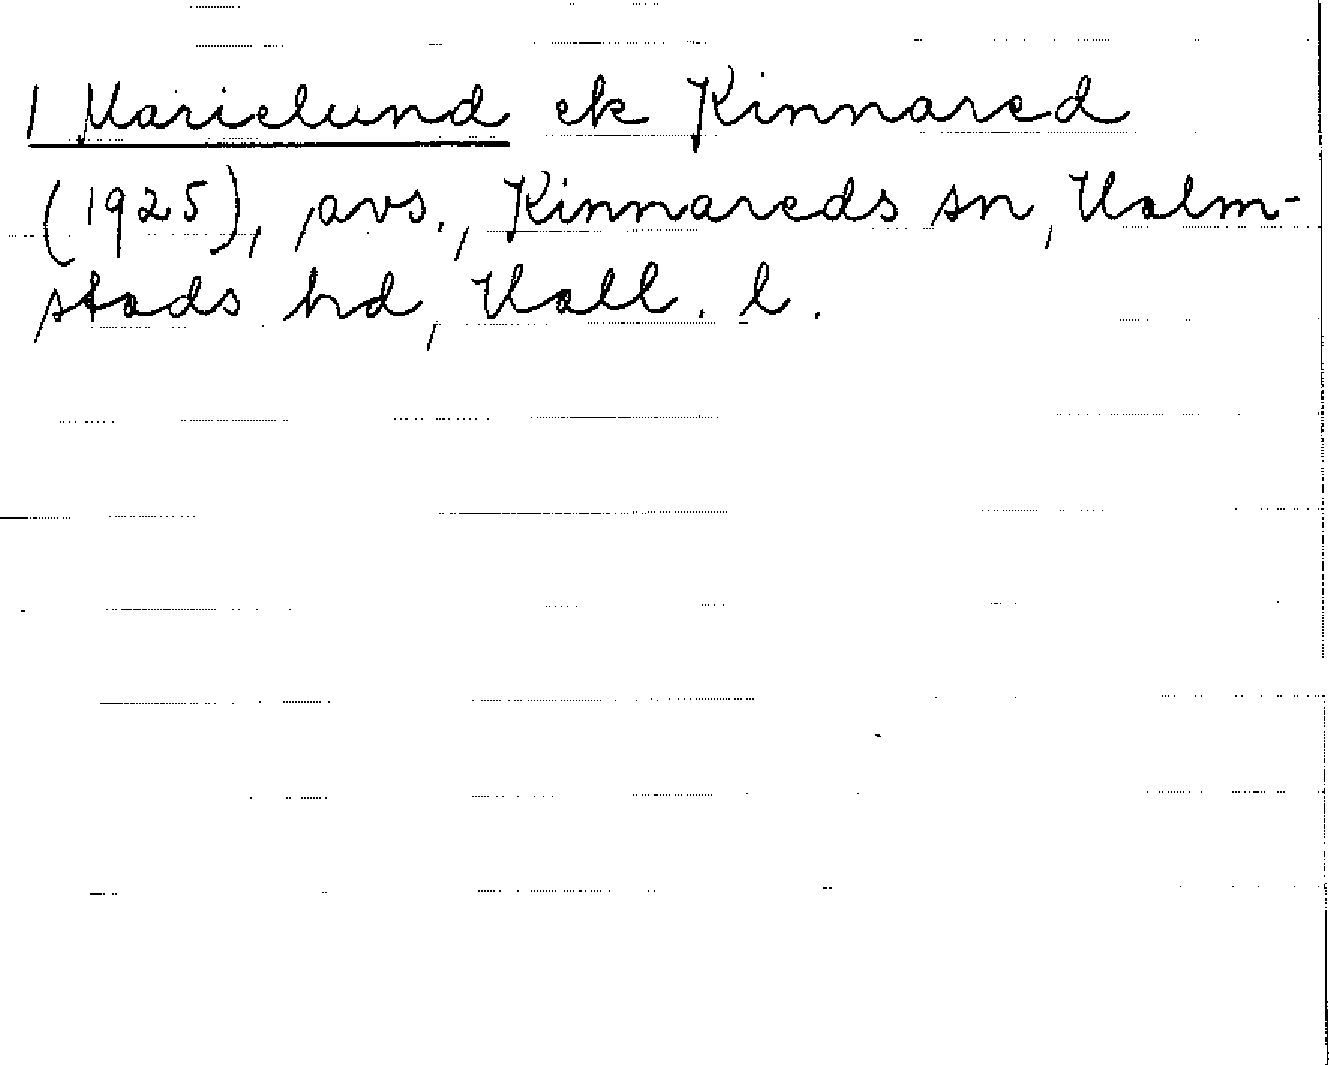 1 Marielund ek Kinnared
(1925), avs., Kinnareds sn, Halm-
stads hd, Hall. l.